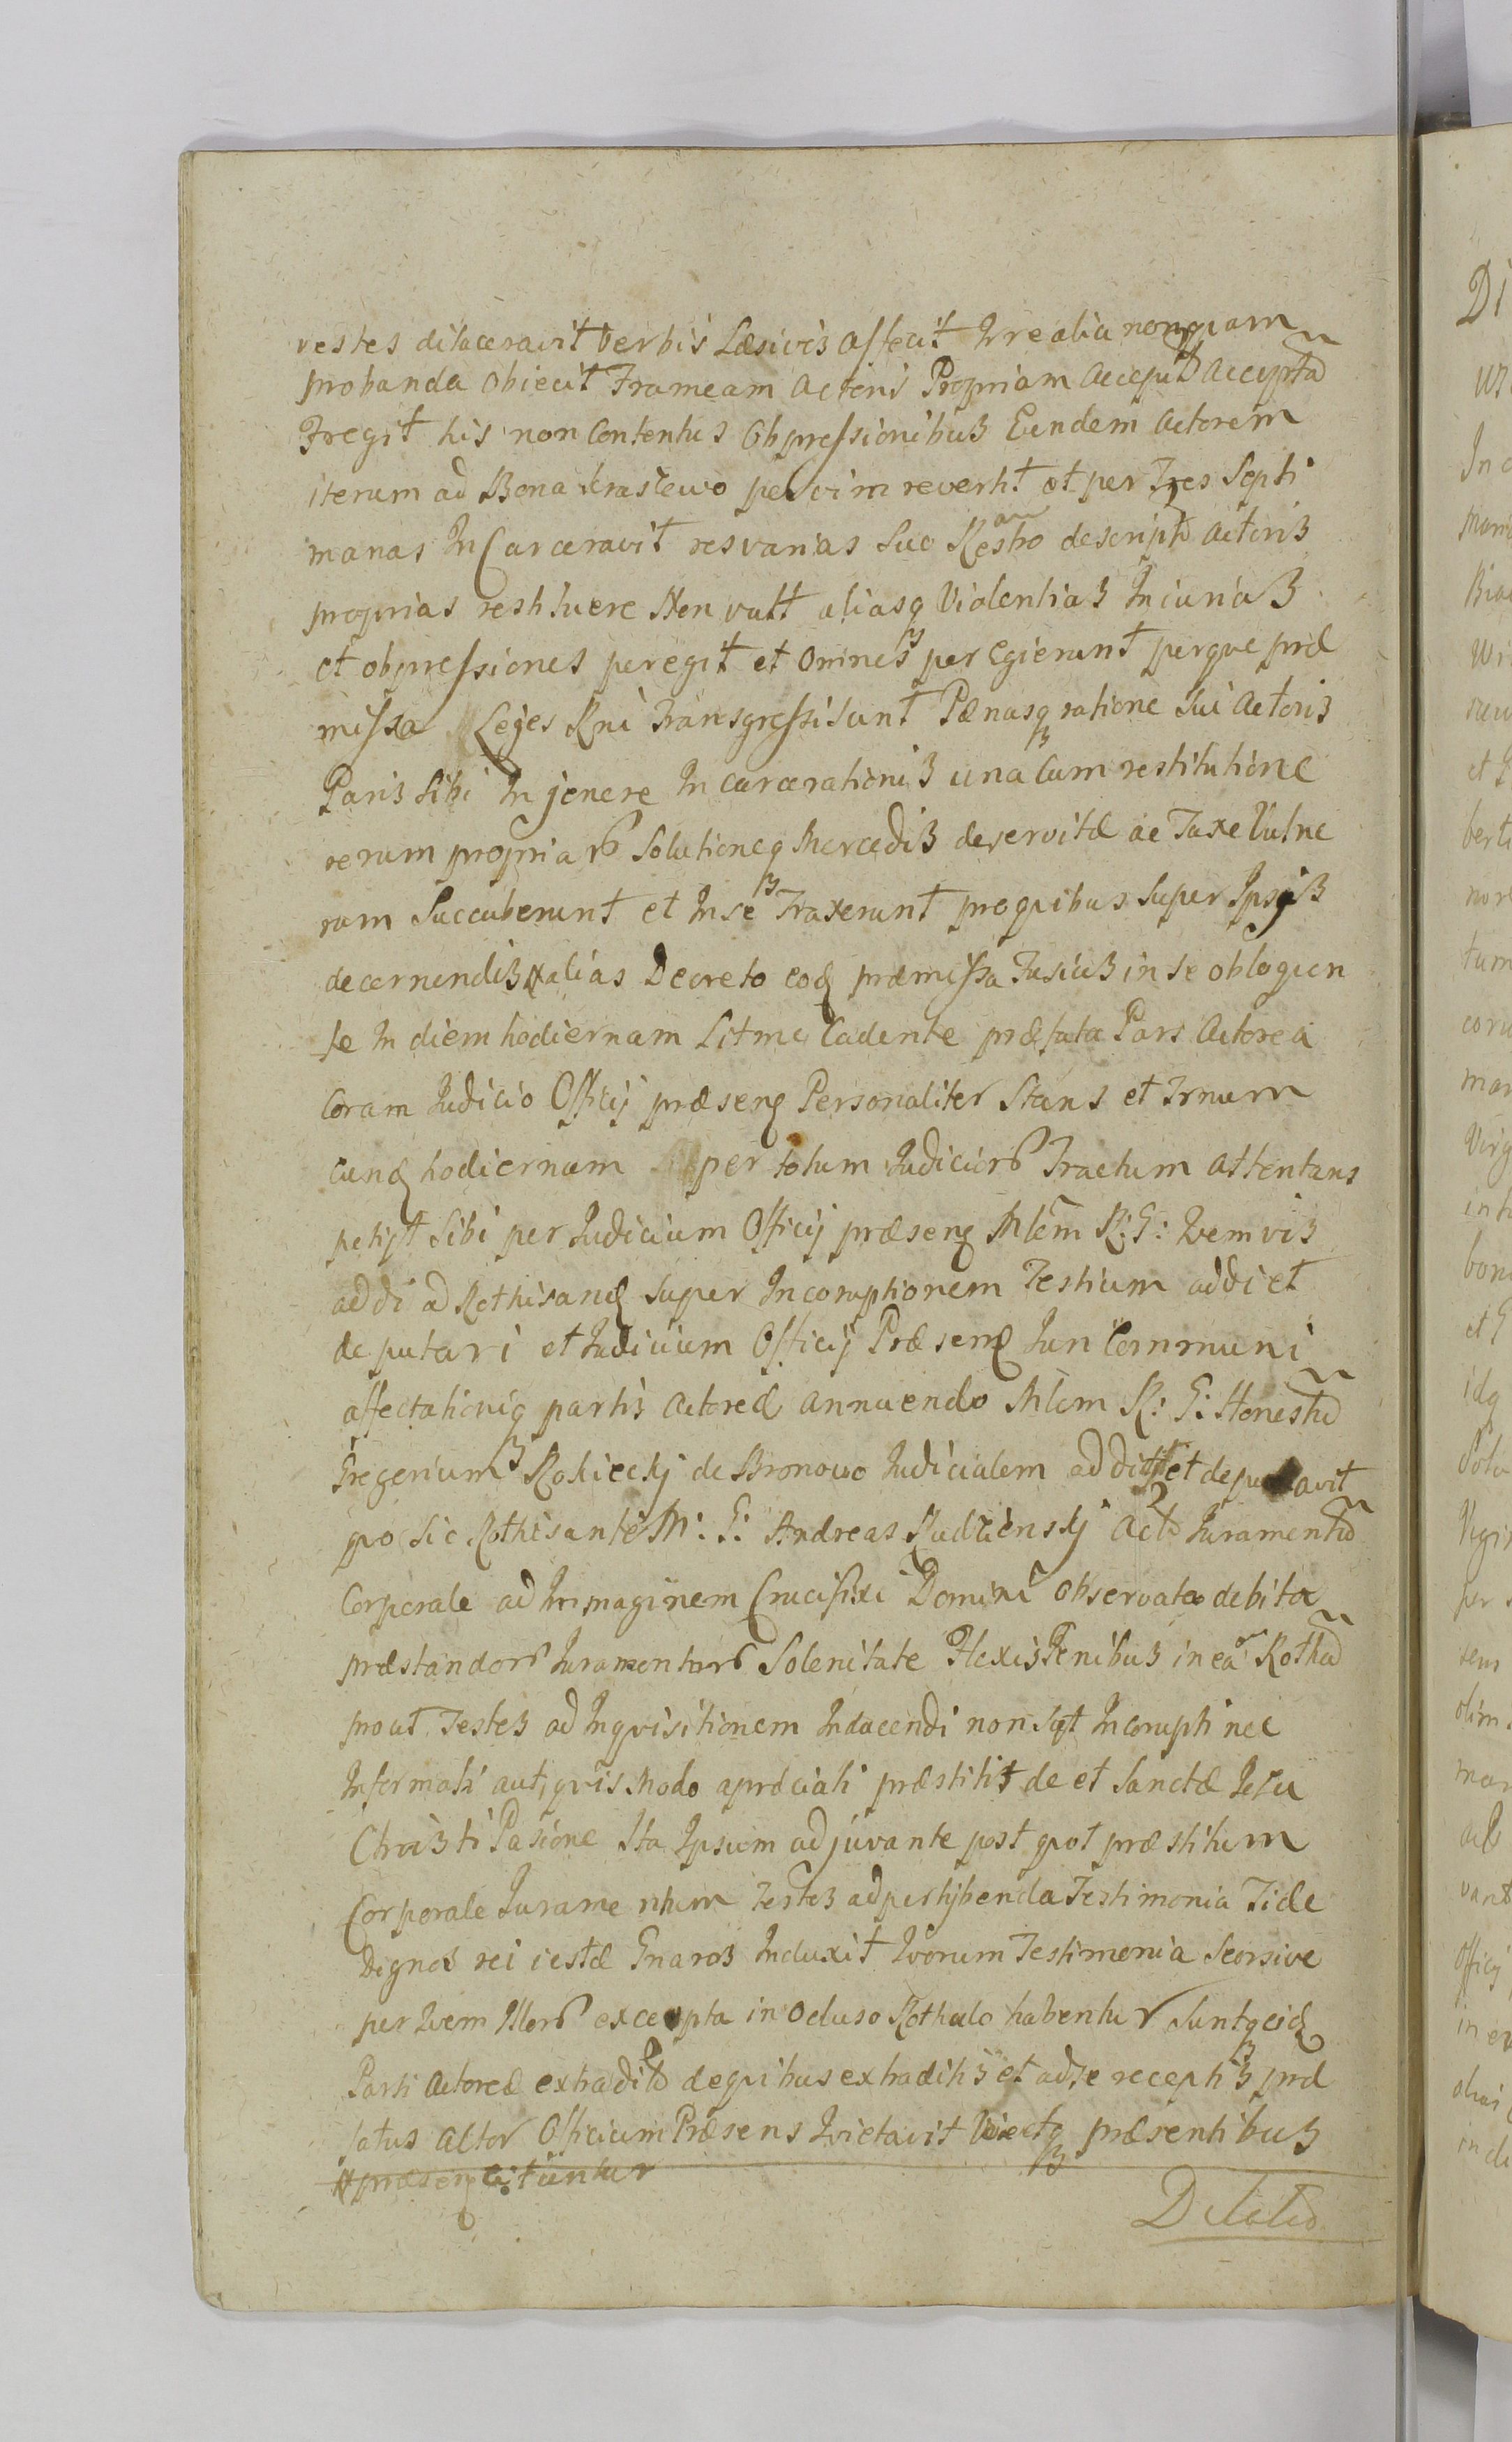 vestes dilaceravit verbis Læsivis affecit Irrealia nonquam
probanda obiecit Frameam actoris Propriam accepit acceptã
Fregit his non contentus obpressionibus Eundem actorem
iterum ad Bona Krasiewo per vim revertit et per Tres Septi
manas InCarceravit res varias suo Resto descriptas actoris
proprias restituere Non vult aliasq Violentias Iniurias
et obpressiones peregit et omnes peregierunt perque præ
missa Leges Rni Transgressi sunt Pænasq ratione sui actoris
Paris sibi In jenere Incarcerationis una cum restitutione
rerum propriar solutioneq Mercedis deservitæ ac Taxe Vulne
rum Succuberunt et In se Traxerunt pro quibus super Ipsis
decernendis alias Decreto eoq præmissa Fusius in se obloquen
te In diem hodiernam Litme Cadente præfata Pars actorea
Coram Iudicio Officij præsenq Personaliter Stans et Trnum
cunq hodiernum per totum Iudicior Tractum attentans
petijt sibi per Iudicium Officij præsenq Mlem R: G: Zemvis
addi ad Rothisanq super Incoruptionem Testium addi et
deputari et Iudicium Officij Præsenq Iuri Communi
affectationiq partis actoreæ annuendo Mlem R: G: Honestũ
Gregorium Rokicckj de Bronowo Iudicialem addit et deputavit
quo sic Rothisante M: G: Andreas Rudzienskj actor Iuramentũ
Corporale ad Immaginem Crucifixi Domini observata debita
præstandor Iuramentor Solenitate Flexis Genibus in ea Rotha
prout Testes ad Inquisitionem Inducendi non sut Incorupti nec
Informati aut quis Modo apræciati præstitit de et Sanctæ Iesu
Christi Pasione Ita Ipsum adjuvante post quot præstitum
Corporale Iuramentum Testes ad perhijbenda Testimonia Fide
Dignos rei iestæ Gnaros Induxit Ivorum Testimonia Seorsive
per Ivem Illor excepta in ocluso Rothulo habentur suntq eidq
Parti actoreæ extradita de quibus extraditis et ad se receptis præ
fatus actor Officium Præsens Ivietavit præsentibus
præsenq
Dilatio